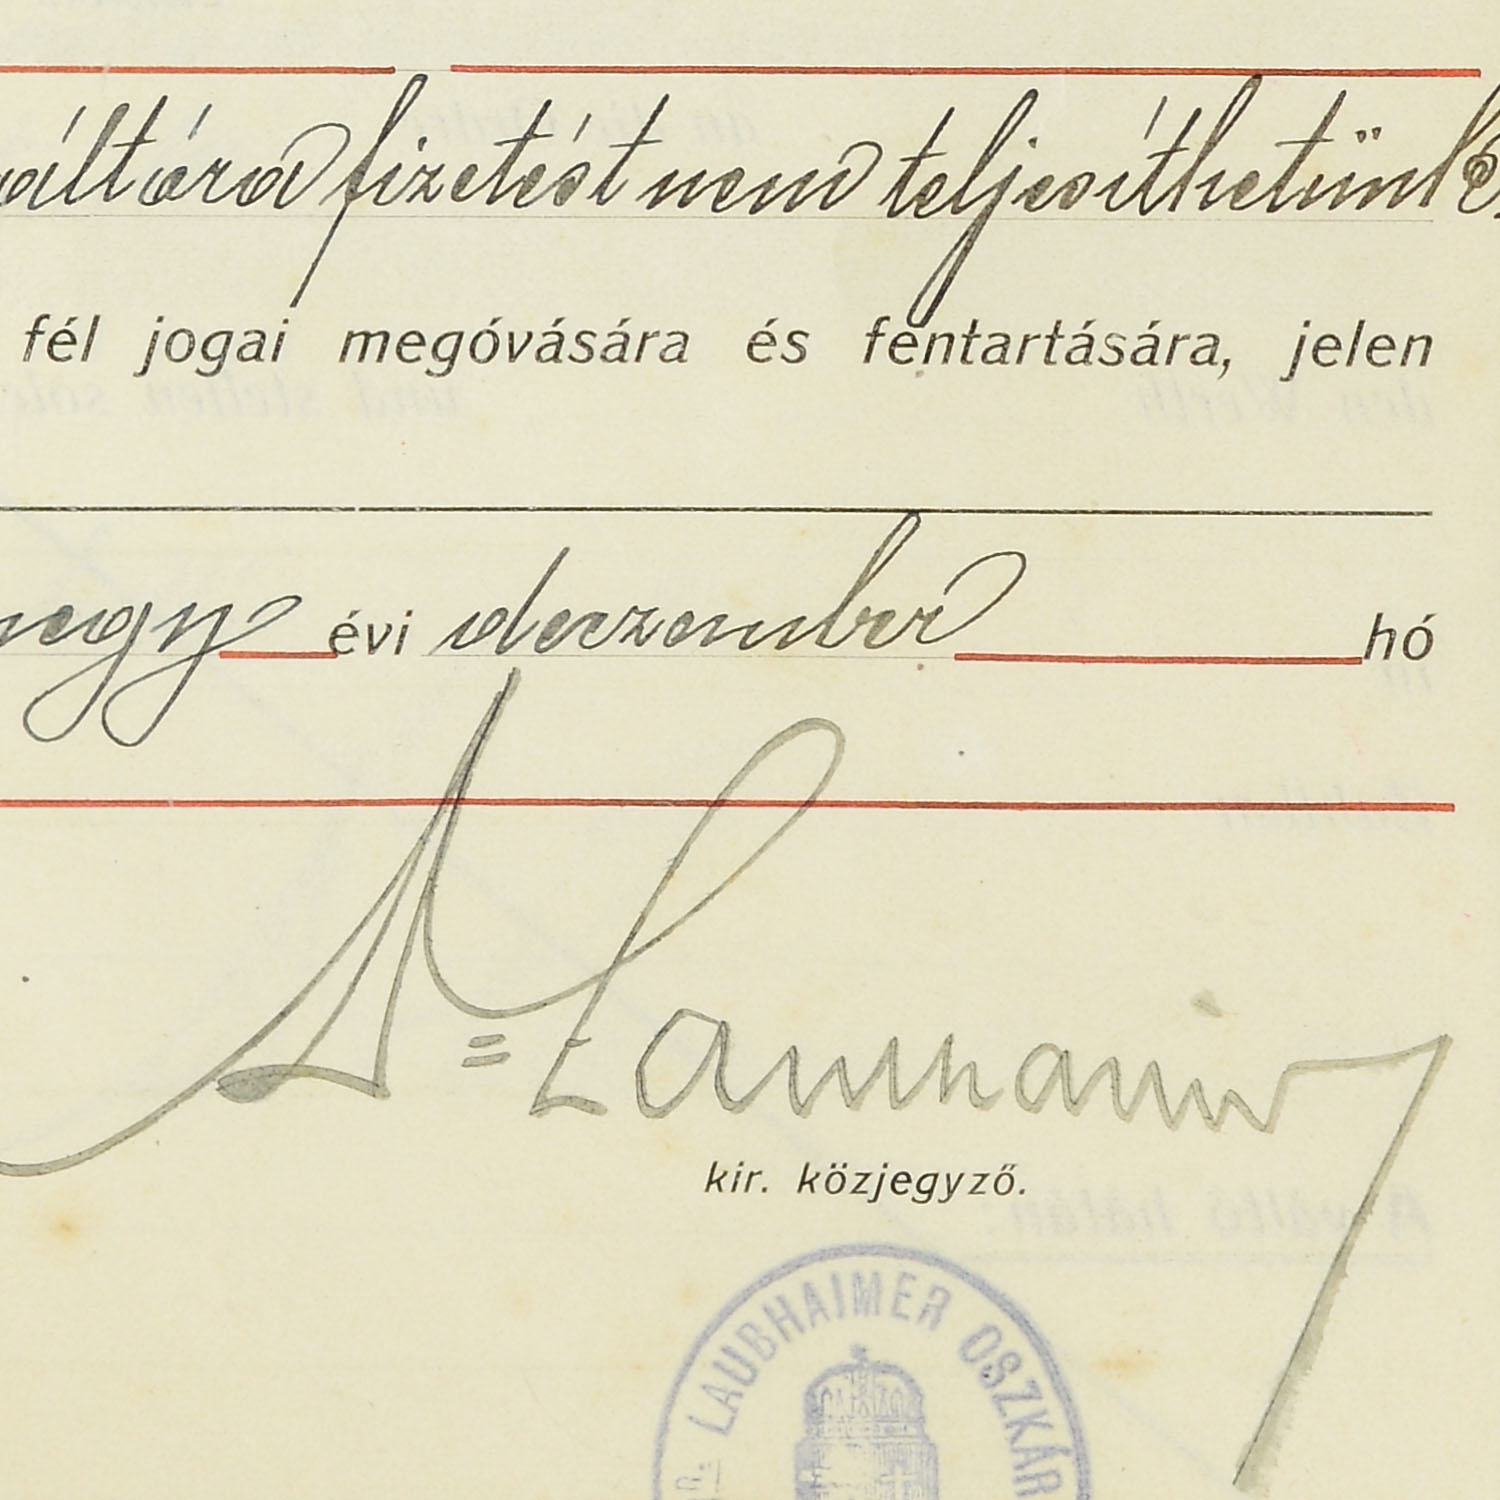 váltóra fizetést nem teljesíthetünk
fél jogai megóvására és fentartására, jelen
négy évi deczember hó
Dr Laubhaimer
kir. közjegyző.
DR. LAUBHAIMER OSZKÁR